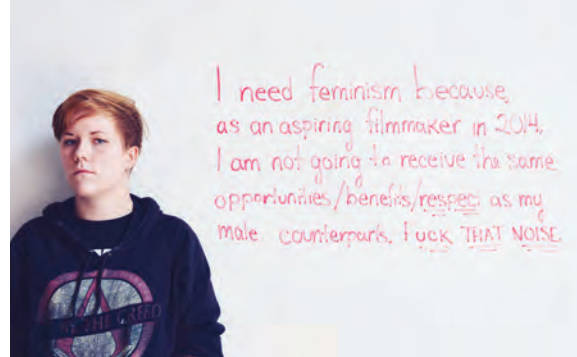 I need feminism because,
as an aspiring filmmaker in 2014,
I am not going to receive the same
opportunities/benefits/respect as my
male counterparts. Fuck THAT NOISE
THE CREED